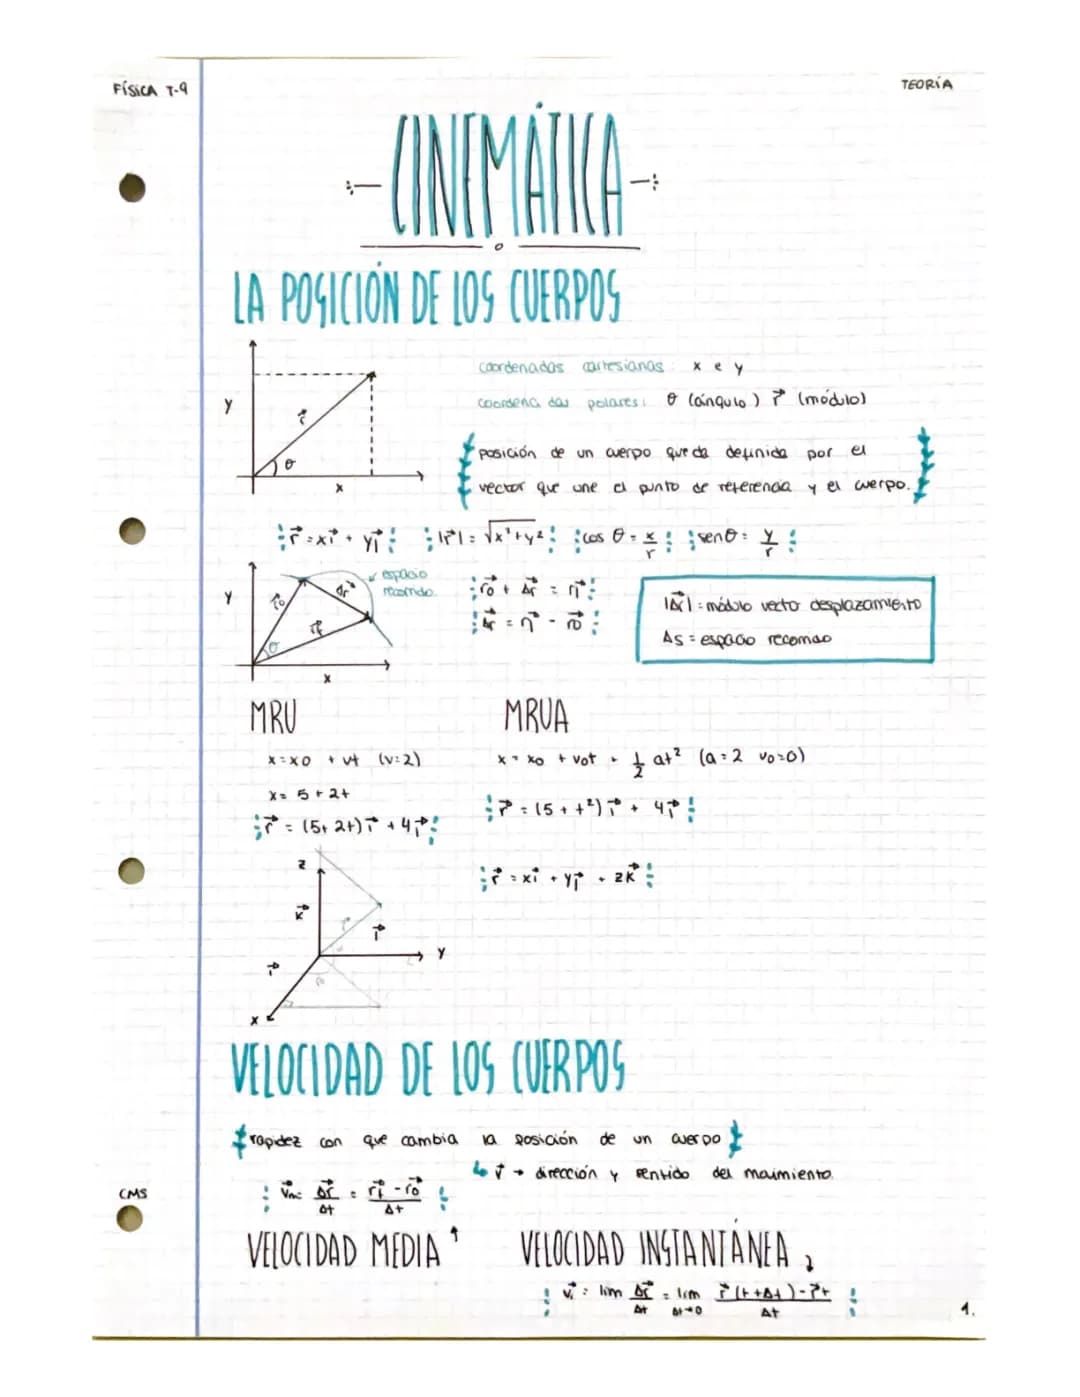 FÍSICA T-9
TEORÍA
CINEMÁTICA
LA POSICIÓN DE LOS CUERPOS
coordenadas cartesianas: x e y
coordenadas polares: θ (ángulo) r⃗ (módulo)
y
r⃗
θ
x
posición de un cuerpo queda definida por el
vector que une el punto de referencia y el cuerpo.
r⃗ = xi⃗ + yj⃗ |r⃗| = √x²+y² cos θ = x/r senθ = y/r
espacio
recorrido
y
r⃗o
Δr⃗
r⃗f
θ
x
r⃗o + Δr⃗ = r⃗f
Δr⃗ = r⃗f - r⃗o
|Δr⃗| = módulo vector desplazamiento
Δs = espacio recorrido
MRU
MRUA
x = xo + vt (v=2)
x = xo + vot + 1/2 at² (a=2 vo=0)
x = 5 + 2t
r⃗ = (5+t²)i⃗ + 4j⃗
r⃗ = (5+2t)i⃗ + 4j⃗
z
r⃗ = xi⃗ + yj⃗ + zk⃗
k⃗
r⃗
j⃗
y
i⃗
x
VELOCIDAD DE LOS CUERPOS
rapidez con que cambia la posición de un cuerpo
v⃗ → dirección y sentido del movimiento.
v⃗m = Δr⃗/Δt = r⃗f - r⃗o/Δt
CMS
VELOCIDAD MEDIA
VELOCIDAD INSTANTÁNEA
v⃗i = lim Δr⃗/Δt = lim Δt→0 r⃗(t+Δt)-r⃗t/Δt
1.